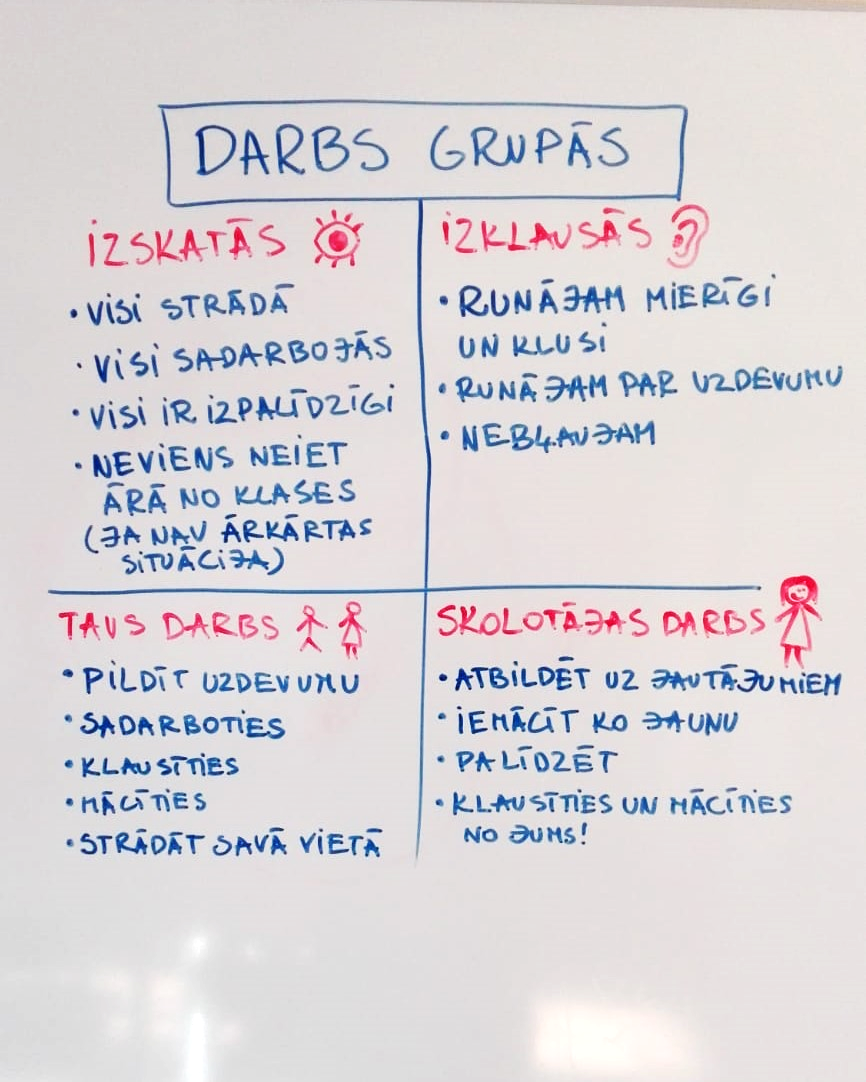 DARBS GRUPĀS
IZSKATĀS
• VISI STRĀDĀ
• VISI SADARBOJĀS
• VISI IR IZPALĪDZĪGI
• NEVIENS NEIET
ĀRĀ NO KLASES
(JA NAV ĀRKĀRTAS
SITUĀCIJA)
IZKLAUSĀS
• RUNĀJAM MIERĪGI
UN KLUSI
• RUNĀJAM PAR UZDEVUMU
• NEBĻAUJAM
TAVS DARBS
• PILDĪT UZDEVUMU
• SADARBOTIES
• KLAUSĪTIES
• MĀCĪTIES
• STRĀDĀT SAVĀ VIETĀ
SKOLOTĀJAS DARBS
• ATBILDĒT UZ JAUTĀJUMIEM
• IEMĀCĪT KO JAUNU
• PALĪDZĒT
• KLAUSĪTIES UN MĀCĪTIES
NO JUMS!